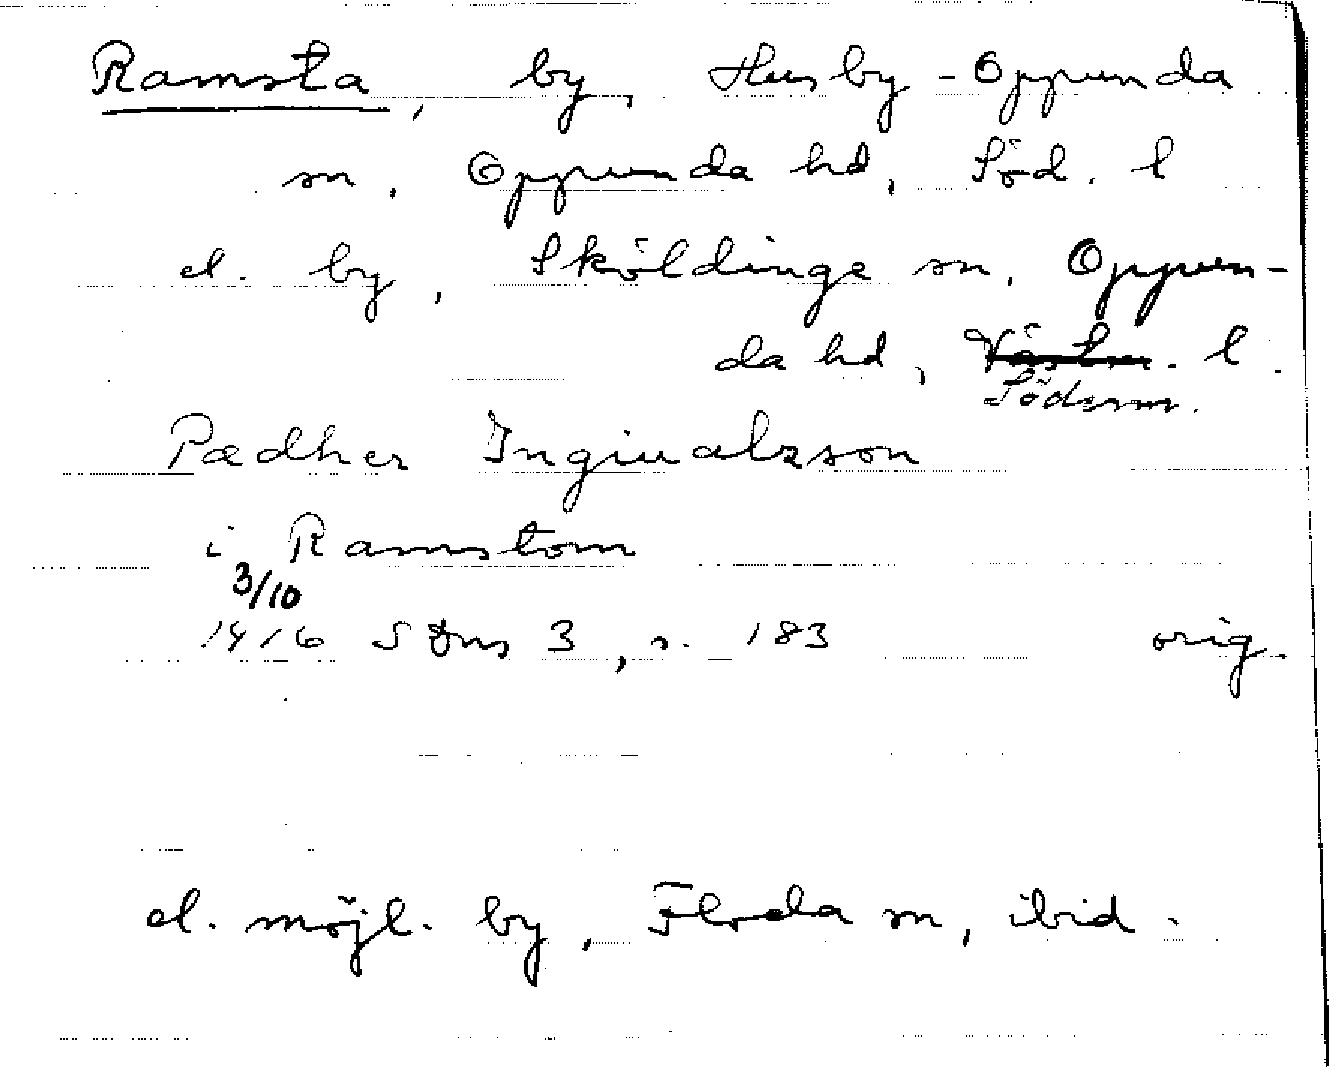 Ramsta, by, Husby-Oppunda
sn, Oppunda hd, Söd. l
el. by, Sköldinge sn, Oppun-
da hd, Västm. l.
Söderm.
Pædher Ingiualzson
i Ramstom
3/10
1416 SDns 3, s. 183 orig.
el. möjl. by, Floda sn, ibid.